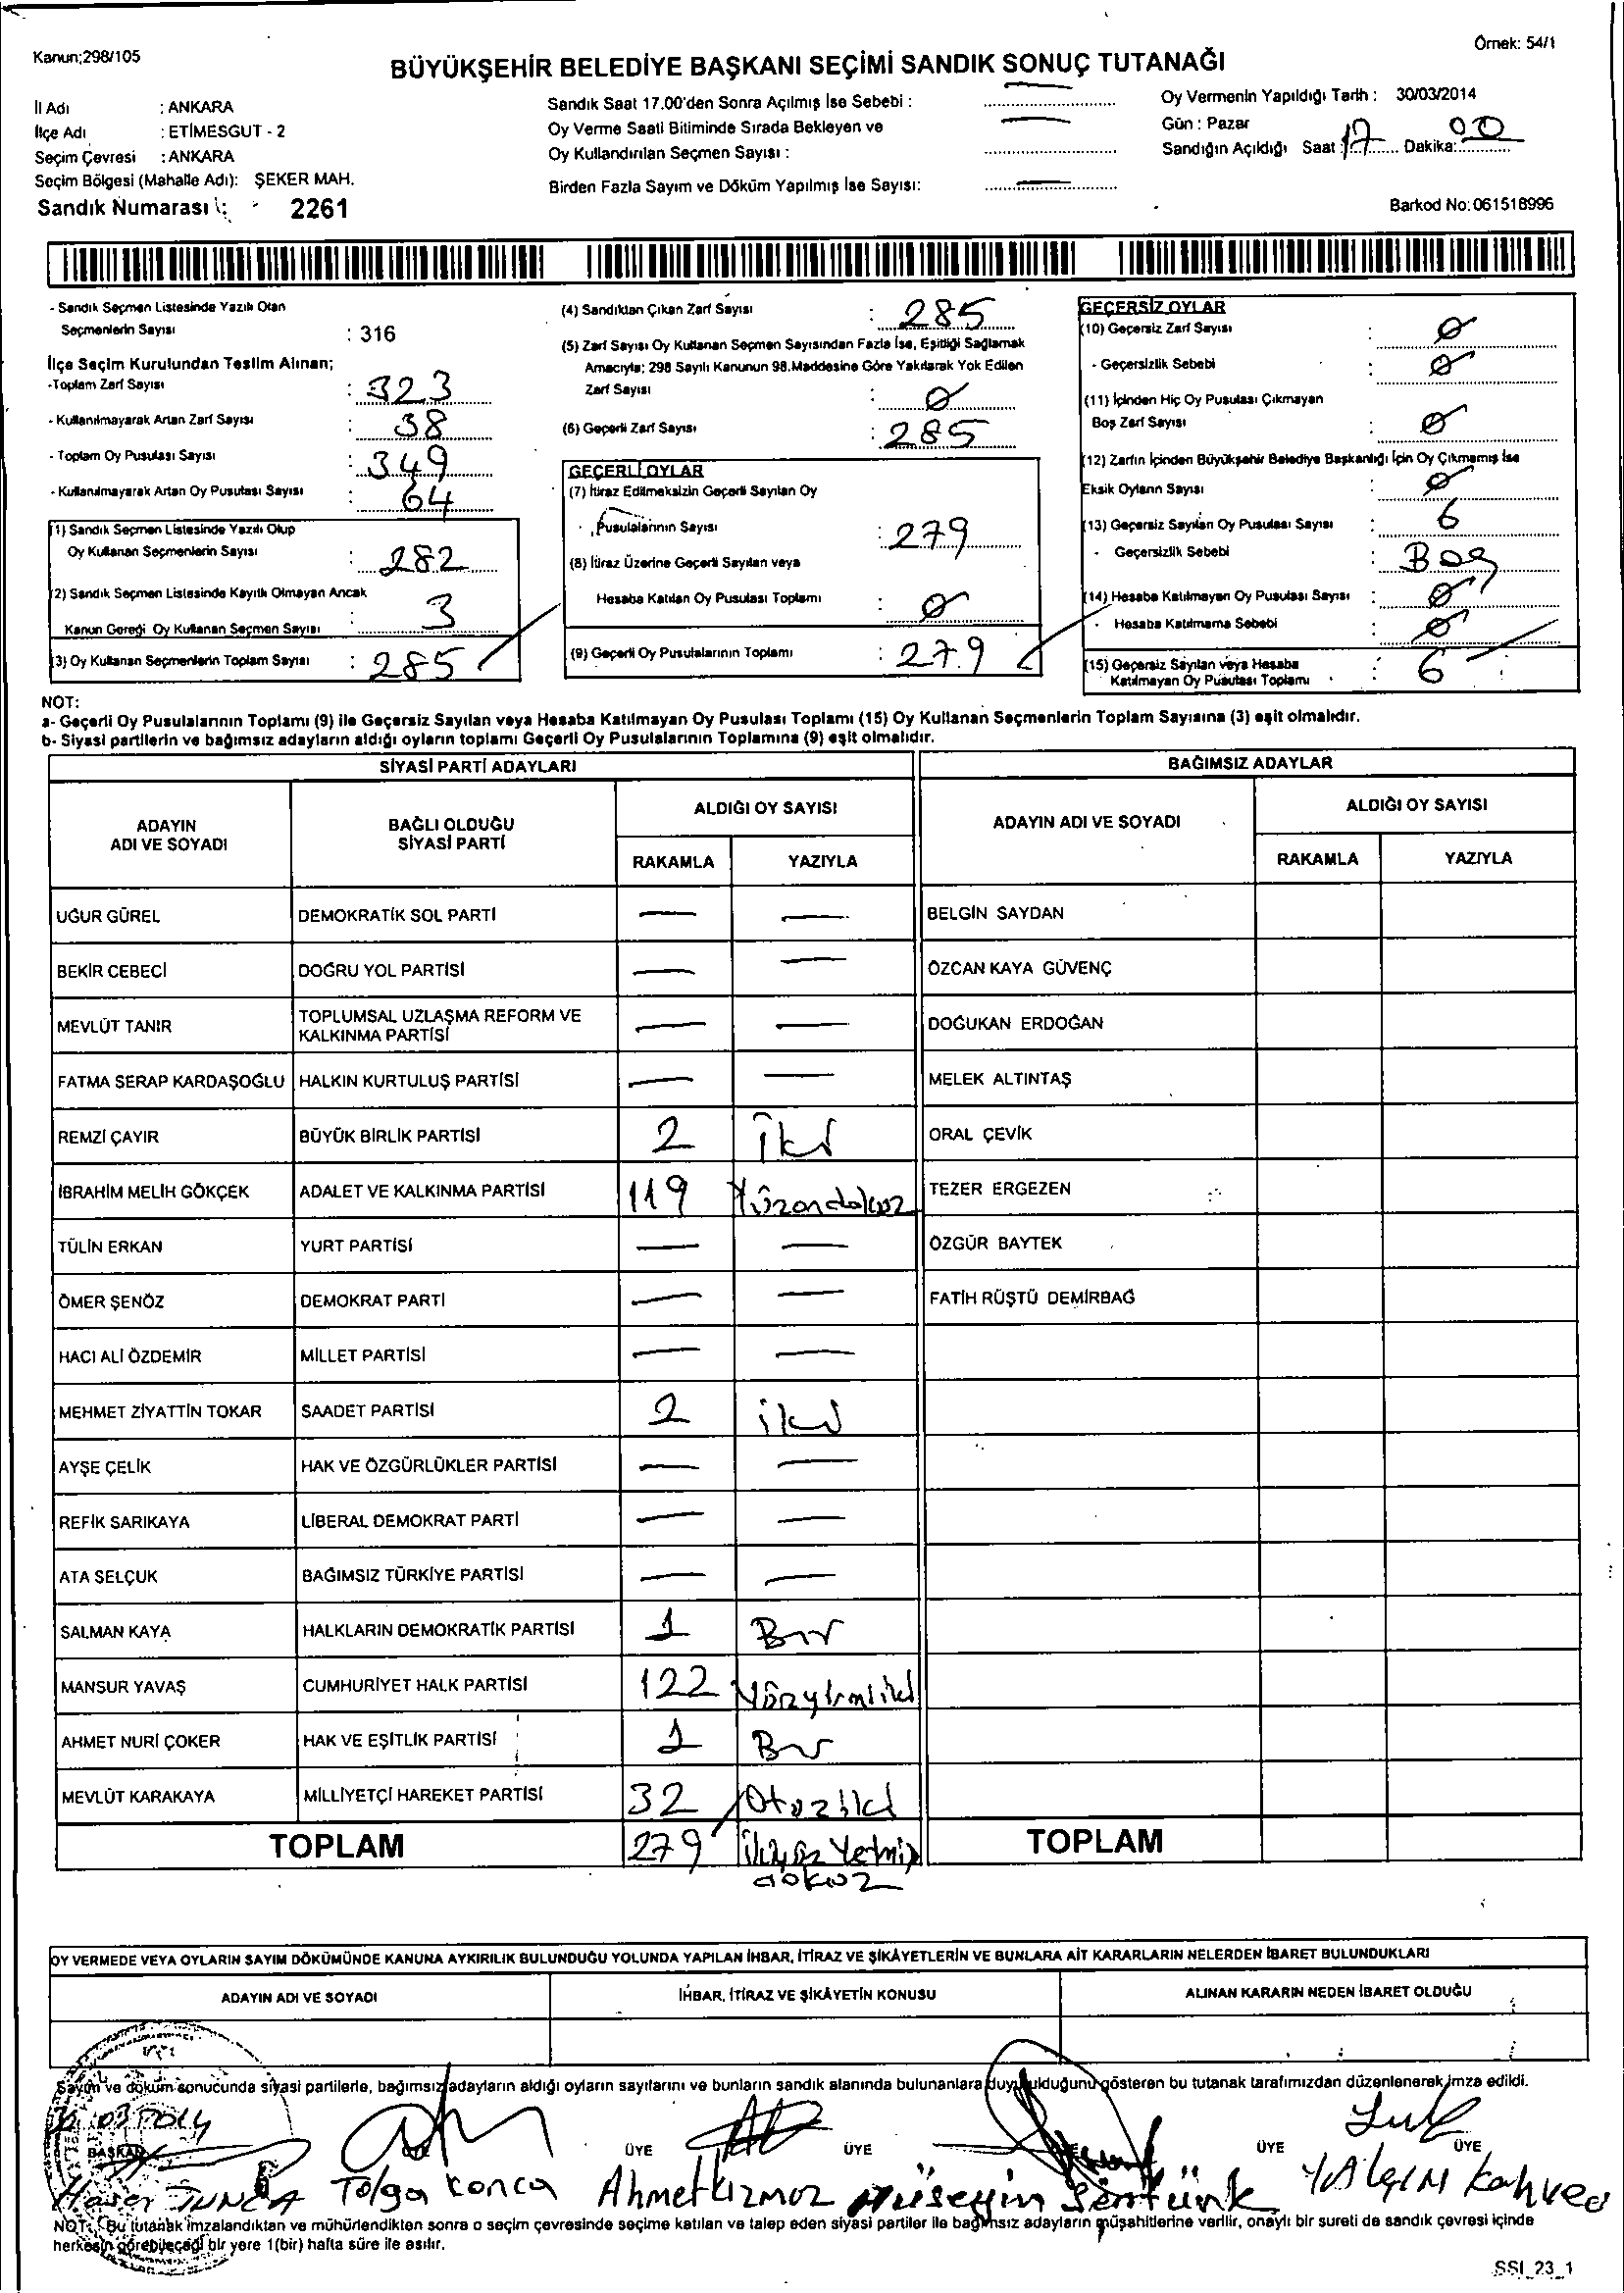 Kanun;298/105
Örnek: 54/1
BÜYÜKŞEHİR BELEDİYE BAŞKANI SEÇİMİ SANDIK SONUÇ TUTANAĞI
İl Adı : ANKARA
İlçe Adı : ETİMESGUT - 2
Seçim Çevresi : ANKARA
Seçim Bölgesi (Mahalle Adı): ŞEKER MAH.
Sandık Numarası : 2261
Sandık Saat 17.00'den Sonra Açılmış İse Sebebi :
Oy Verme Saati Bitiminde Sırada Bekleyen ve
Oy Kullandırılan Seçmen Sayısı :
Birden Fazla Sayım ve Döküm Yapılmış İse Sayısı:
Oy Vermenin Yapıldığı Tarih : 30/03/2014
Gün : Pazar
Sandığın Açıldığı Saat : 17 Dakika: 00
Barkod No:061518996
- Sandık Seçmen Listesinde Yazılı Olan
Seçmenlerin Sayısı : 316
İlçe Seçim Kurulundan Teslim Alınan;
-Toplam Zarf Sayısı : 323
- Kullanılmayarak Artan Zarf Sayısı : 38
- Toplam Oy Pusulası Sayısı : 349
- Kullanılmayarak Artan Oy Pusulası Sayısı : 64
(1) Sandık Seçmen Listesinde Yazılı Olup
Oy Kullanan Seçmenlerin Sayısı : 282
(2) Sandık Seçmen Listesinde Kayıtlı Olmayan Ancak
Kanun Gereği Oy Kullanan Seçmen Sayısı : 3
(3) Oy Kullanan Seçmenlerin Toplam Sayısı : 285
(4) Sandıktan Çıkan Zarf Sayısı : 285
(5) Zarf Sayısı Oy Kullanan Seçmen Sayısından Fazla İse, Eşitliği Sağlamak
Amacıyla; 298 Sayılı Kanunun 98.Maddesine Göre Yakılarak Yok Edilen
Zarf Sayısı : 0
(6) Geçerli Zarf Sayısı : 285
GEÇERLİ OYLAR
(7) İtiraz Edilmeksizin Geçerli Sayılan Oy
Pusulalarının Sayısı : 279
(8) İtiraz Üzerine Geçerli Sayılan veya
Hesaba Katılan Oy Pusulası Toplamı : 0
(9) Geçerli Oy Pusulalarının Toplamı : 279
GEÇERSİZ OYLAR
(10) Geçersiz Zarf Sayısı : 0
- Geçersizlik Sebebi : 0
(11) İçinden Hiç Oy Pusulası Çıkmayan
Boş Zarf Sayısı : 0
(12) Zarfın İçinden Büyükşehir Belediye Başkanlığı İçin Oy Çıkmamış İse
Eksik Oyların Sayısı : 0
(13) Geçersiz Sayılan Oy Pusulası Sayısı : 6
- Geçersizlik Sebebi : Boş
(14) Hesaba Katılmayan Oy Pusulası Sayısı : 0
- Hesaba Katılmama Sebebi : 0
(15) Geçersiz Sayılan veya Hesaba
Katılmayan Oy Pusulası Toplamı : 6
NOT:
a- Geçerli Oy Pusulalarının Toplamı (9) ile Geçersiz Sayılan veya Hesaba Katılmayan Oy Pusulası Toplamı (15) Oy Kullanan Seçmenlerin Toplam Sayısına (3) eşit olmalıdır.
b- Siyasi partilerin ve bağımsız adayların aldığı oyların toplamı Geçerli Oy Pusulalarının Toplamına (9) eşit olmalıdır.
SİYASİ PARTİ ADAYLARI BAĞIMSIZ ADAYLAR
ADAYIN ADI VE SOYADI BAĞLI OLDUĞU SİYASİ PARTİ ALDIĞI OY SAYISI ADAYIN ADI VE SOYADI ALDIĞI OY SAYISI
RAKAMLA YAZIYLA RAKAMLA YAZIYLA
UĞUR GÜREL DEMOKRATİK SOL PARTİ — — BELGİN SAYDAN
BEKİR CEBECİ DOĞRU YOL PARTİSİ — — ÖZCAN KAYA GÜVENÇ
MEVLÜT TANIR TOPLUMSAL UZLAŞMA REFORM VE KALKINMA PARTİSİ — — DOĞUKAN ERDOĞAN
FATMA SERAP KARDAŞOĞLU HALKIN KURTULUŞ PARTİSİ — — MELEK ALTINTAŞ
REMZİ ÇAYIR BÜYÜK BİRLİK PARTİSİ 2 İki ORAL ÇEVİK
İBRAHİM MELİH GÖKÇEK ADALET VE KALKINMA PARTİSİ 119 Yüzondokuz TEZER ERGEZEN
TÜLİN ERKAN YURT PARTİSİ — — ÖZGÜR BAYTEK
ÖMER ŞENÖZ DEMOKRAT PARTİ — — FATİH RÜŞTÜ DEMİRBAĞ
HACI ALİ ÖZDEMİR MİLLET PARTİSİ — —
MEHMET ZİYATTİN TOKAR SAADET PARTİSİ 2 iki
AYŞE ÇELİK HAK VE ÖZGÜRLÜKLER PARTİSİ — —
REFİK SARIKAYA LİBERAL DEMOKRAT PARTİ — —
ATA SELÇUK BAĞIMSIZ TÜRKİYE PARTİSİ — —
SALMAN KAYA HALKLARIN DEMOKRATİK PARTİSİ 1 Bir
MANSUR YAVAŞ CUMHURİYET HALK PARTİSİ 122 Yüzyirmiiki
AHMET NURİ ÇOKER HAK VE EŞİTLİK PARTİSİ 1 Bir
MEVLÜT KARAKAYA MİLLİYETÇİ HAREKET PARTİSİ 32 Otuziki
TOPLAM 279 İkiyüz Yetmiş dokuz TOPLAM
OY VERMEDE VEYA OYLARIN SAYIM DÖKÜMÜNDE KANUNA AYKIRILIK BULUNDUĞU YOLUNDA YAPILAN İHBAR, İTİRAZ VE ŞİKÂYETLERİN VE BUNLARA AİT KARARLARIN NELERDEN İBARET BULUNDUKLARI
ADAYIN ADI VE SOYADI İHBAR, İTİRAZ VE ŞİKÂYETİN KONUSU ALINAN KARARIN NEDEN İBARET OLDUĞU
Sayım ve döküm sonucunda siyasi partilerle, bağımsız adayların aldığı oyların sayılarını ve bunların sandık alanında bulunanlara duyurulduğunu gösteren bu tutanak tarafımızdan düzenlenerek imza edildi.
30.03.2014
BAŞKAN ÜYE ÜYE ÜYE ÜYE
TUNCA Tolga Konca Ahmet Kızmaz Hüseyin Şentürk YALÇIN Kahveci
NOT: Bu tutanak imzalandıktan ve mühürlendikten sonra o seçim çevresinde seçime katılan ve talep eden siyasi partiler ile bağımsız adayların müşahitlerine verilir, onaylı bir sureti de sandık çevresi içinde
herkesin görebileceği bir yere 1(bir) hafta süre ile asılır.
SSI_23_1